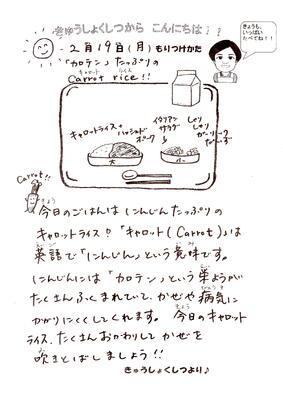 きゅうしょくしつから こんにちは
2月19日(月) もりつけかた
きょうも、
いっぱい
たべてね!!
「カロテン」たっぷりの
キャロット らいす
Carrot rice!!
キャロットライス+ハッシュド
ポーク
イタリアン
サラダ
大
小
Carrot!!
今日のごはんは にんじんたっぷりの
キャロットライス♪「キャロット(Carrot)」は
英語で「にんじん」という意味です。
にんじんには「カロテン」という栄ようが
たくさんふくまれていて、かぜや病気に
かかりにくくしてくれます。今日のキャロット
ライス、たくさんおかわりして かぜを
吹きとばしましょう!!
きゅうしょくしつより♪